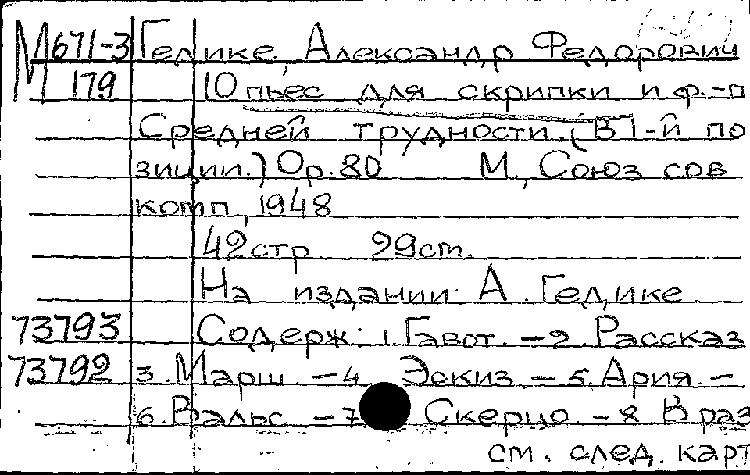 М 671-3 Гедике, Александр Федорович
М 179 10 пьес для скрипки и ф.-п
Средней трудности. (В 1-й по
зиции.) Ор. 80 М., Союз сов
комп, 1948
42 стр. 29 ст.
На издании: А. Гедике
73793 Содерж: 1. Гавот. – 2. Рассказ
73792 3. Марш – 4. Эскиз. – 5. Ария. –
6. Вальс – 7 Скерцо. – 8 В раз
см. след. карт